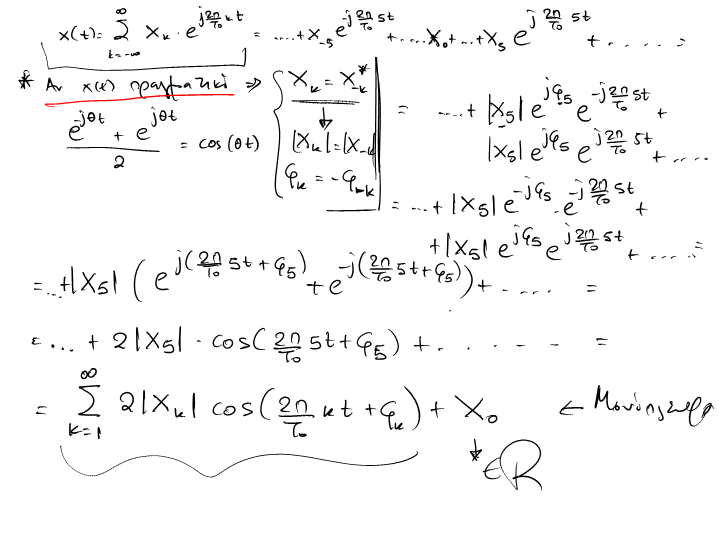 x(t) = ∑_{k=-∞}^{∞} X_k · e^{j 2π/T₀ kt} = ....+ X_{-5} e^{-j 2π/T₀ 5t} + .... X₀ + ..+ X_5 e^{j 2π/T₀ 5t} + ..... =
* Αν x(t) πραγματικό ⇒ { X_k = X*_{-k} ↓ |X_k| = |X_{-k}| φ_k = -φ_{-k}
(e^{-jθt} + e^{jθt}) / 2 = cos(θt)
= ...+ |X_5| e^{jφ_5} e^{-j 2π/T₀ 5t} +
|X_5| e^{jφ_5} e^{j 2π/T₀ 5t} + ....
= ...+ |X_5| e^{-jφ_5} · e^{-j 2π/T₀ 5t} +
+ |X_5| e^{jφ_5} e^{j 2π/T₀ 5t} + ..... =
= ...+ |X_5| ( e^{j(2π/T₀ 5t + φ_5)} + e^{-j(2π/T₀ 5t + φ_5)} ) + ..... =
= ... + 2|X_5| · cos( 2π/T₀ 5t + φ_5 ) + . . . . . =
= ∑_{k=1}^{∞} 2|X_k| cos( 2π/T₀ kt + φ_k ) + X₀ ←
↓
∈ ℝ